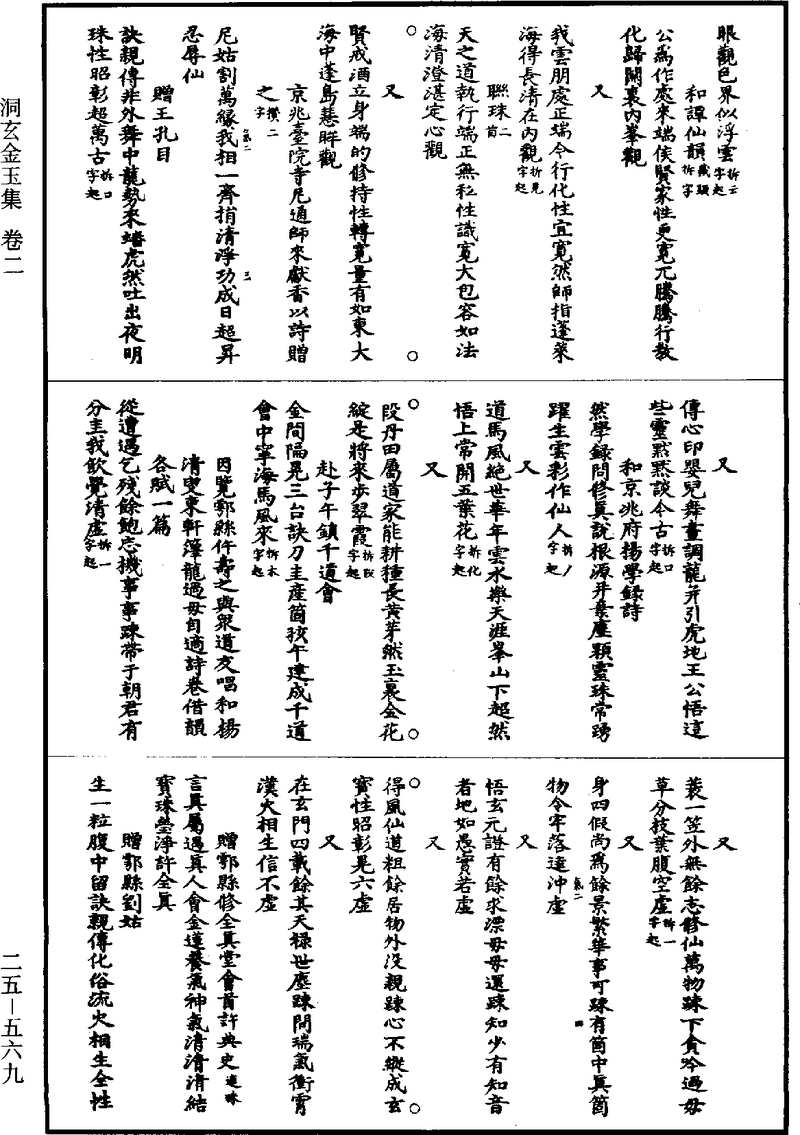 眼觀色界似浮雲拆云字起
和譚仙韻藏頭拆字
公爲作處來端侯賢家性更寬兀騰騰行教
化歸開裏內峯觀
又
我雲朋處正端令行化性宜寬然師指蓬萊
海得長清在內觀拆見字起
聯珠二首
天之道執行端正無私性識寬大包容如法
海清澄湛定心觀
又
賢戒酒立身端的修持性轉寬量有如東大
海中蓬島慧眸觀
京兆臺院寺尼通師來獻香以詩贈
之攢二字
尼姑割萬緣我相一齊捐清淨功成日超昇
忍辱仙
贈王孔目
訣親傳非外舞中龍勢來蟠虎然吐出夜明
珠性昭彰超萬古拆口字起
又
傳心印嬰兒舞畫調龍并引虎地王公悟這
些靈黙黙談今古拆口字起
和京兆府楊學錄詩
然學錄問修眞說根源并棄塵顆靈珠常踴
躍生雲彩作仙人拆丿字起
又
道馬風絕世華年雲水樂天涯峯山下超然
悟上常開五葉花拆化字起
又
段丹田屬道家能耕種長黃芽然玉裏金花
綻是將來步翠霞拆段字起
赴子午鎮千道會
金間隔晃三台訣刀圭產箇孩午建成千道
會中寧海馬風來拆木字起
因覽鄠縣仵壽之與衆道友唱和楊
清叟東軒籜龍過毋自適詩卷借韻
各賦一篇
從遭遇乞殘餘飽忘機事事踈帶于朝君有
分主我飲覺清虛拆一字起
又
蓑一笠外無餘志修仙萬物踈下貪吟過毋
草分技葉腹空虛拆一字起
又
身四假尚爲餘景繁華事可踈有箇中眞箇
物令牢落達沖虛
又
悟玄元證有餘求漂毋毋還踈知少有知音
者地如愚實若虛
又
得風仙道粗餘居物外沒親踈心不縱成玄
寳性昭彰晃六虛
又
在玄門四載餘其天祿世塵踈開瑞氣衝霄
漢火相生信不虛
贈鄠縣修全眞堂會首許典史連珠
言眞屬遇眞人會金蓮養氣神氣清清清結
寳珠瑩淨許全眞
贈鄠縣劉姑
生一粒腹中留訣親傳化俗流火相生全性
洞玄金玉集 卷二
二五—五六九